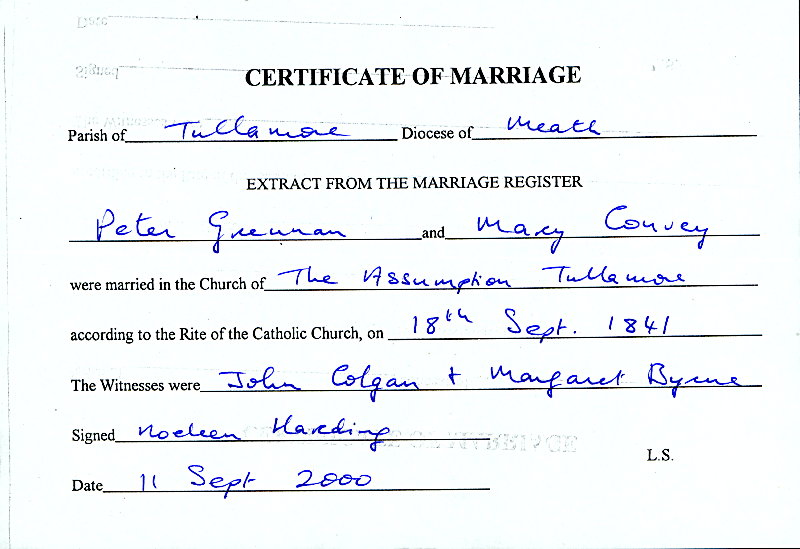 CERTIFICATE OF MARRIAGE
Parish of Tullamore Diocese of Meath
EXTRACT FROM THE MARRIAGE REGISTER
Peter Grennan and Mary Convey
were married in the Church of The Assumption Tullamore
according to the Rite of the Catholic Church, on 18th Sept. 1841
The Witnesses were John Colgan + Margaret Byrne
Signed Noeleen Harding
L.S.
Date 11 Sept 2000